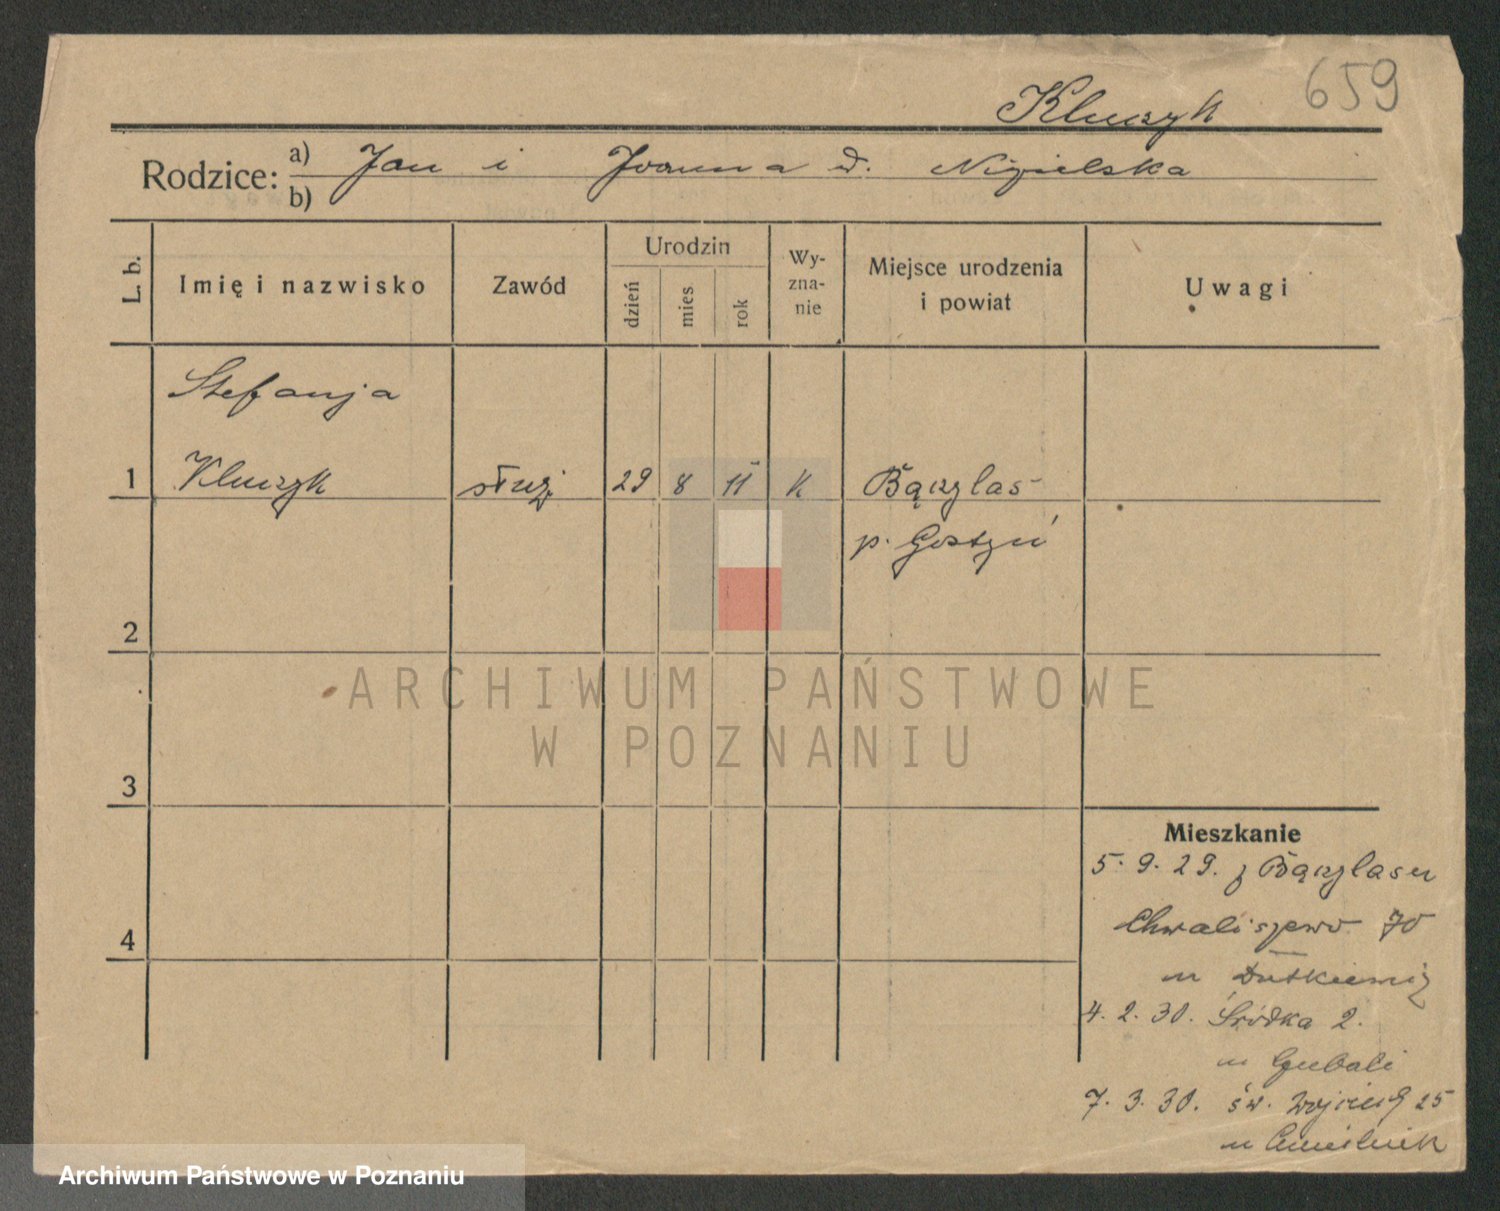 659
Kluczyk
Rodzice: a) Jan i Joanna d. Nizielska
b)
L. b.
Imię i nazwisko
Zawód
Urodzin
dzień
mies
rok
Wy-
zna-
nie
Miejsce urodzenia
i powiat
Uwagi
Stefanja
1 Kluczyk służ. 29 8 11 K Bączylas
p. Gostyń
2
3
4
Mieszkanie
5.9.29. z Bączylasu
Chwaliszewo 70
u Dutkiewicz
4.2.30. Śródka 2.
u
7.3.30. św. Wojciech 25
u
ARCHIWUM PAŃSTWOWE
W POZNANIU
Archiwum Państwowe w Poznaniu